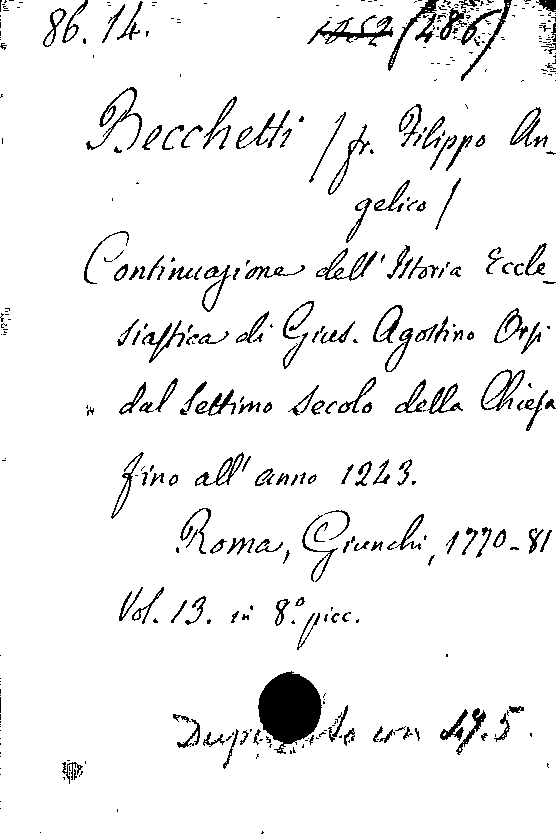 86. 14. 1852 (486)
Becchetti / fr. Filippo An-
gelico /
Continuazione dell' Istoria Eccle-
siastica di Gius. Agostino Orsi
dal Settimo Secolo della Chiesa
fino all' anno 1243.
Roma, Giunchi, 1770-81
Vol. 13. in 8.º picc.
con 49.5.